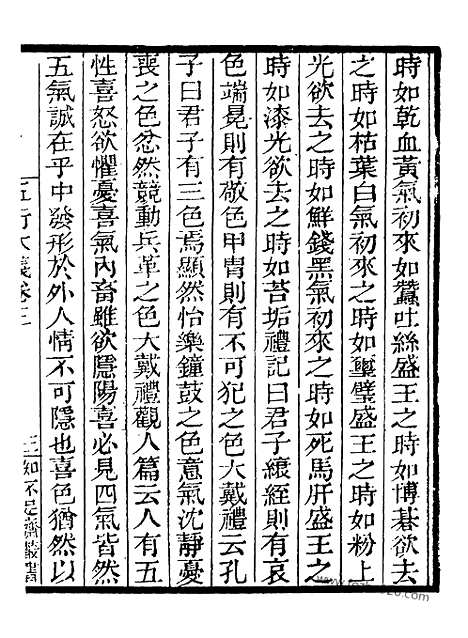 時如乾血黃氣初來如蠶吐絲盛王之時如博碁欲去
之時如枯葉白氣初來之時如璽璧盛王之時如粉上
光欲去之時如鮮錢黑氣初來之時如死馬肝盛王之
時如漆光欲去之時如苔垢禮記曰君子縗絰則有哀
色端冕則有敬色甲胄則有不可犯之色大戴禮云孔
子曰君子有三色焉顯然怡樂鐘鼓之色意氣沈靜憂
喪之色忿然競動兵革之色大戴禮觀人篇云人有五
性喜怒欲懼憂喜氣內畜雖欲隱陽喜必見四氣皆然
五氣誠在乎中發形於外人情不可隱也喜色猶然以
五行大義卷三
知不足齋叢書